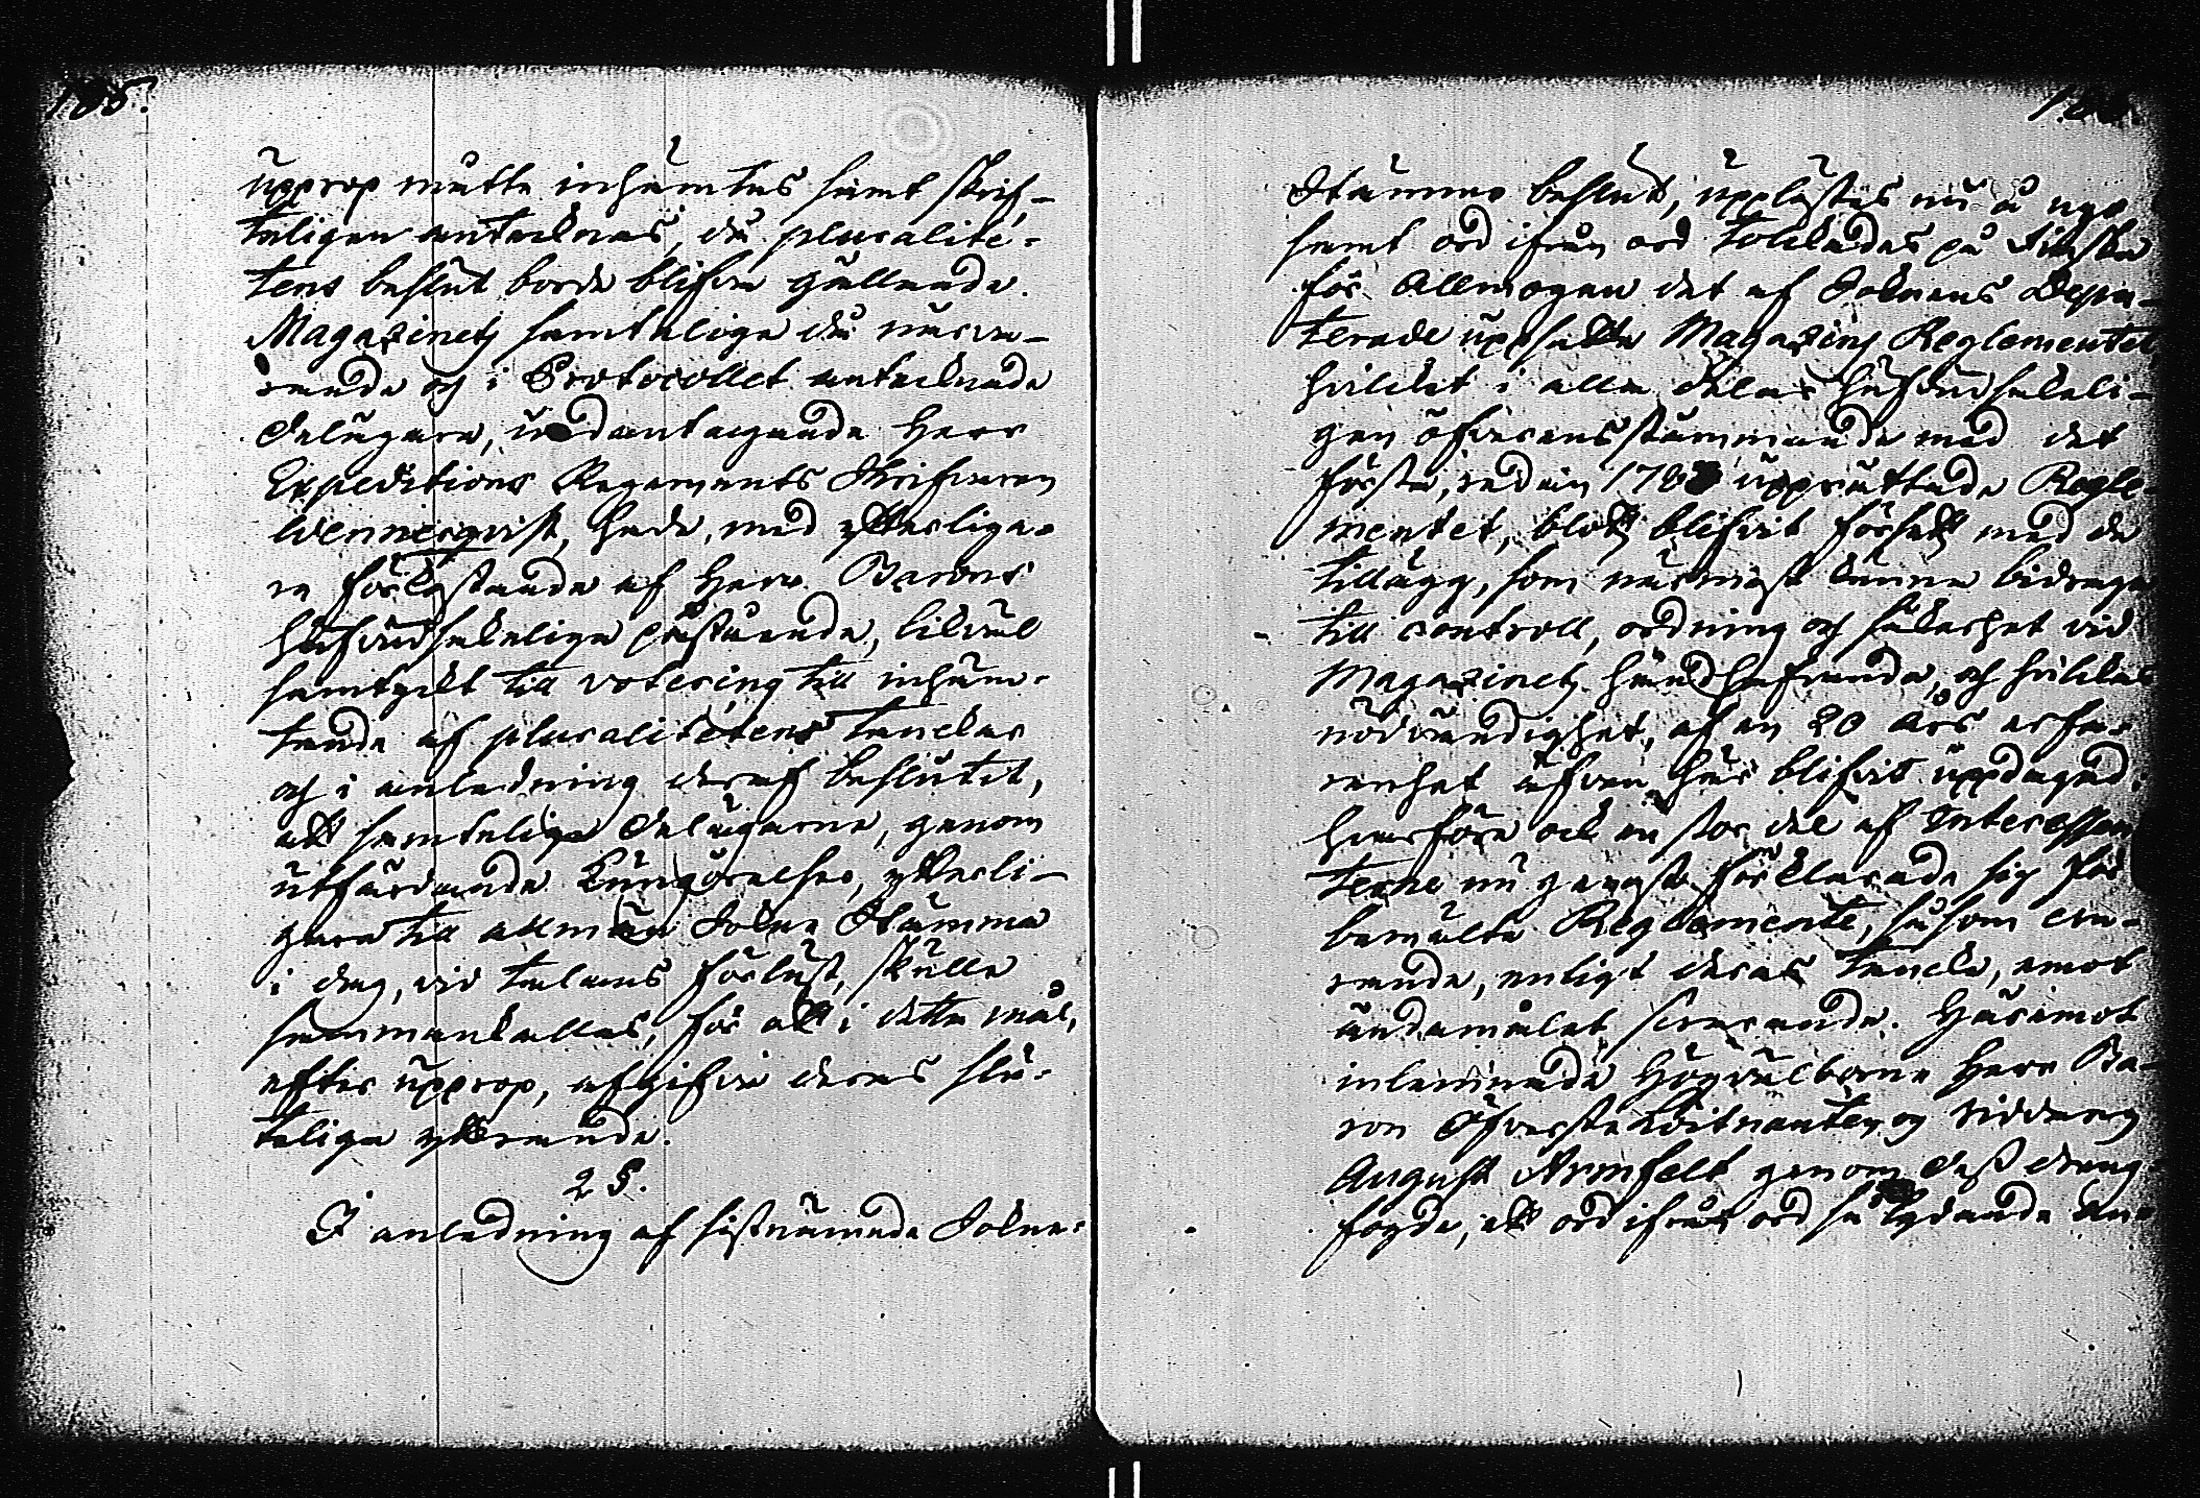 185.
upprop måtte inhämtas samt skrif-
teligen antecknas, då pluralite-
tens beslut borde blifva gällande.
Magazinetz samtelige då närva-
rande och i Protocollet antecknade
Delägare, undantagande Herr
Expeditions Regements Skrifvaren
Wennerqvist, hade, med ytterliga-
re förkastande af Herr Barons
hufvudsakeliga påstående, likväl
samtyckt till votering till inhäm-
tande af pluralitetens tanckar
och i anledning deraf beslutit,
att samtelige Delägarne, genom
utfärdande Kungörelser, ytterli-
gare till allmän Sokne Stämma
i dag, vid talans förlust, skulle
sammankallas, för att i detta mål,
efter upprop, afgifva deras slu-
teliga yttrande.
2 §.
I anledning af sistnämnde Sokne-
Stämmo beslut, upplästes nu å nyo
samt ord ifrån ord tolckades på Finska
för Allmogen det af Soknens Depu-
terade uppsatte Magazins Reglementet,
hvilcket i alla delar hufvudsakeli-
gen öfverensstämmande med det
första, redan upprättade Regle-
mentet, blott blifvit försatt med de
tillägg, som närmast kunna bidraga
till controll, ordning och säkerhet vid
Magazinetz handhafvande, och hvilckas
nödvändighet, af en 20 års erfa-
renhet äfven här blifvit uppdagad;
hvarföre ock en stor del af Interessen-
terne nu genast förklarade sig för
bemälte Reglemente, såsom sva-
rande, enligt deras tancka, emot
ändamålet svarande. Häremot
inlemnade Högvälborne Herr Ba-
ron Öfverste Löitnanten och Riddaren
August Armfelt genom dess dräng
fogde, ett ord ifrån ord så lydande An-